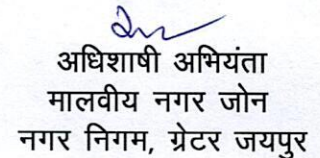 अधिशाषी अभियंता
मालवीय नगर जोन
नगर निगम, ग्रेटर जयपुर